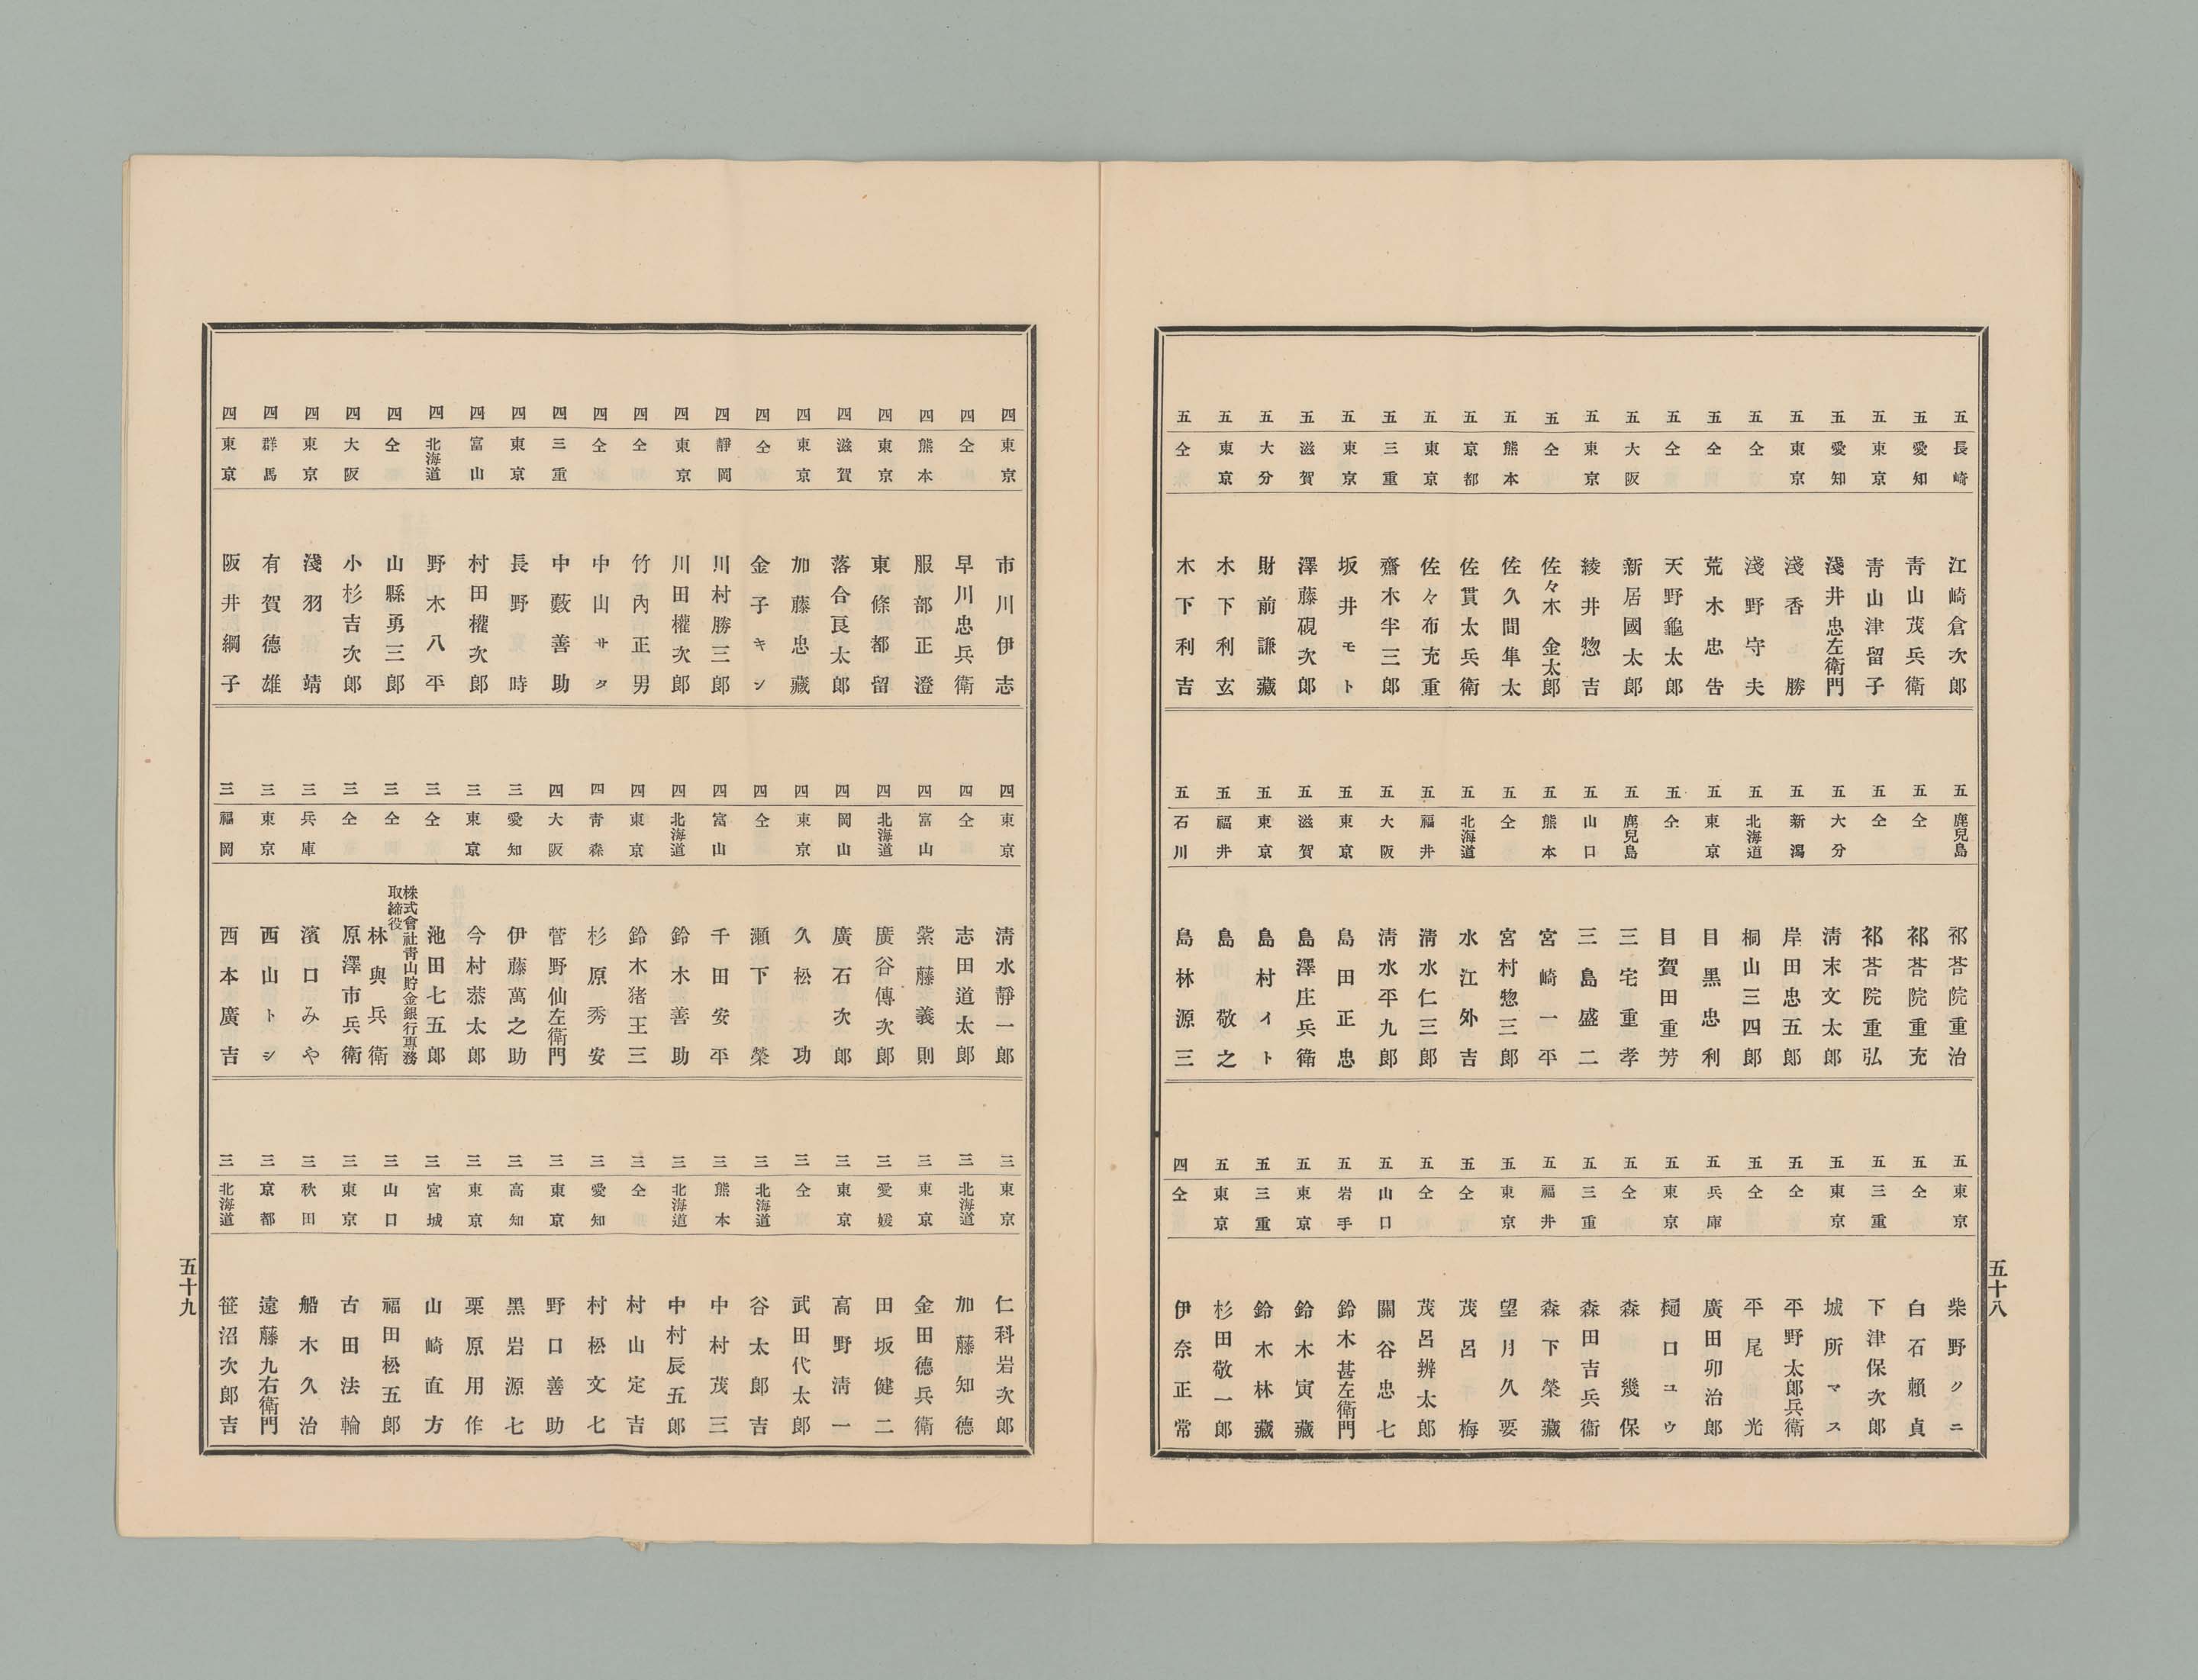 五十八
五 長崎 江崎倉次郎
五 愛知 靑山茂兵衛
五 東京 靑山津留子
五 愛知 淺井忠左衛門
五 東京 淺香勝
五 仝 淺野守夫
五 仝 荒木忠告
五 仝 天野龜太郎
五 大阪 新居國太郎
五 東京 綾井惣吉
五 仝 佐々木金太郎
五 熊本 佐久間隼太
五 京都 佐貫太兵衛
五 東京 佐々布充重
五 三重 齋木半三郎
五 東京 坂井モト
五 滋賀 澤藤硯次郎
五 大分 財前謙藏
五 東京 木下利玄
五 仝 木下利吉
五 鹿兒島 祁荅院重治
五 仝 祁荅院重充
五 仝 祁荅院重弘
五 大分 淸末文太郎
五 新潟 岸田忠五郎
五 北海道 桐山三四郎
五 東京 目黑忠利
五 仝 目賀田重芳
五 鹿兒島 三宅重孝
五 山口 三島盛二
五 熊本 宮崎一平
五 仝 宮村惣三郎
五 北海道 水江外吉
五 福井 淸水仁三郎
五 大阪 淸水平九郎
五 東京 島田正忠
五 滋賀 島澤庄兵衛
五 東京 島村イト
五 福井 島敬之
五 石川 島林源三
五 東京 柴野クニ
五 仝 白石賴貞
五 三重 下津保次郎
五 東京 城所マス
五 仝 平野太郎兵衛
五 仝 平尾光
五 兵庫 廣田卯治郎
五 東京 樋口ユウ
五 仝 森幾保
五 三重 森田吉兵衞
五 福井 森下榮藏
五 東京 望月久要
五 仝 茂呂梅
五 仝 茂呂辨太郎
五 山口 關谷忠七
五 岩手 鈴木甚左衛門
五 東京 鈴木寅藏
五 三重 鈴木林藏
五 東京 杉田敬一郎
四 仝 伊奈正常
四 東京 市川伊志
四 仝 早川忠兵衛
四 熊本 服部正澄
四 東京 東條都留
四 滋賀 落合良太郎
四 東京 加藤忠藏
四 仝 金子キン
四 靜岡 川村勝三郎
四 東京 川田權次郎
四 仝 竹內正男
四 仝 中山サク
四 三重 中藪善助
四 東京 長野時
四 富山 村田權次郎
四 北海道 野木八平
四 仝 山縣勇三郎
四 大阪 小杉吉次郎
四 東京 淺羽靖
四 群馬 有賀德雄
四 東京 阪井綱子
四 東京 淸水靜一郎
四 仝 志田道太郎
四 富山 紫藤義則
四 北海道 廣谷傳次郎
四 岡山 廣石次郎
四 東京 久松功
四 仝 瀨下榮
四 富山 千田安平
四 北海道 鈴木善助
四 東京 鈴木猪王三
四 靑森 杉原秀安
四 大阪 菅野仙左衛門
三 愛知 伊藤萬之助
三 東京 今村恭太郎
三 仝 池田七五郎
三 仝 株式會社靑山貯金銀行專務取締役 林與兵衛
三 仝 原澤市兵衛
三 兵庫 濱口みや
三 東京 西山トシ
三 福岡 西本廣吉
三 東京 仁科岩次郎
三 北海道 加藤知德
三 東京 金田德兵衛
三 愛媛 田坂健二
三 東京 高野淸一
三 仝 武田代太郎
三 北海道 谷太郎吉
三 熊本 中村茂三
三 北海道 中村辰五郎
三 仝 村山定吉
三 愛知 村松文七
三 東京 野口善助
三 高知 黑岩源七
三 東京 栗原用作
三 宮城 山崎直方
三 山口 福田松五郎
三 東京 古田法輪
三 秋田 船木久治
三 京都 遠藤九右衛門
三 北海道 笹沼次郎吉
五十九